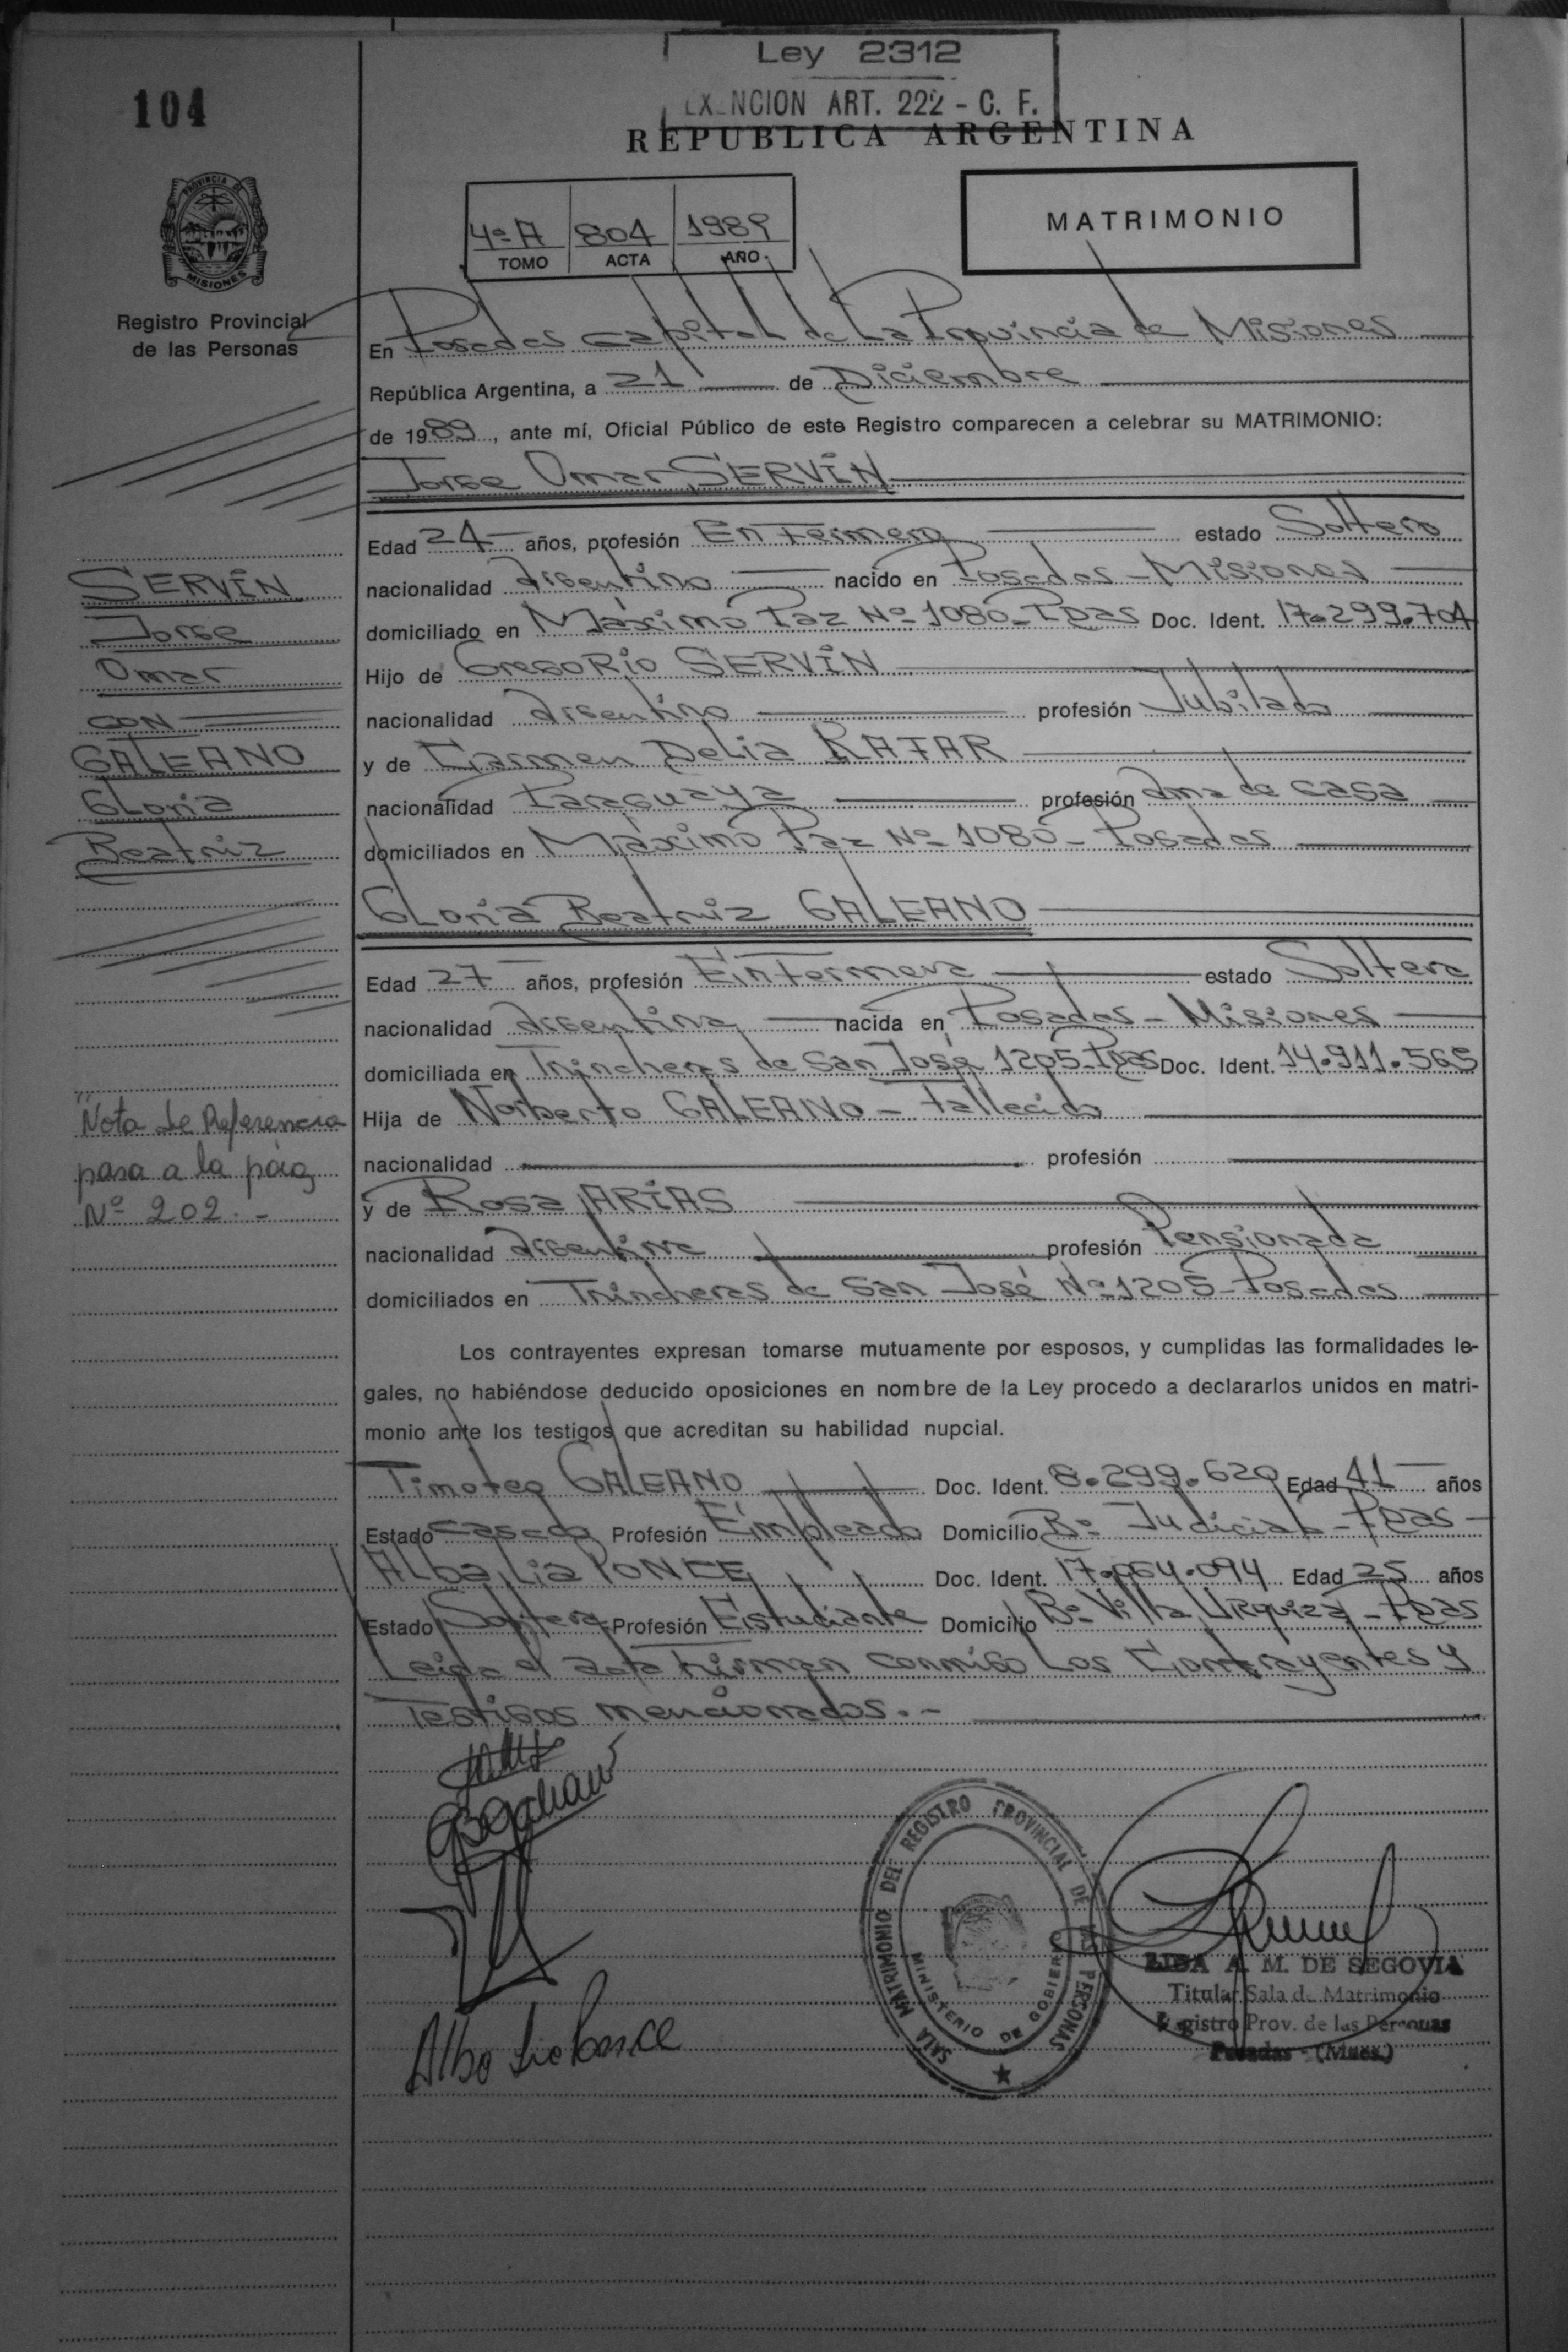 Ley 2312
EXENCION ART. 222 - C. F.
104
REPUBLICA ARGENTINA
PROVINCIA DE
MISIONES
Registro Provincial
de las Personas
4º A 804 1989
TOMO ACTA AÑO
MATRIMONIO
En Posadas Capital de La Provincia de Misiones
República Argentina, a 21 de Diciembre
de 1989, ante mí, Oficial Público de este Registro comparecen a celebrar su MATRIMONIO:
Jorge Omar SERVÍN
Edad 24 años, profesión Enfermero estado Soltero
nacionalidad Argentino nacido en Posadas - Misiones
domiciliado en Máximo Paz Nº 1080 - Pdas Doc. Ident. 17.299.704
Hijo de Gregorio SERVÍN
nacionalidad Argentino profesión Jubilado
y de Carmen Delia
nacionalidad Paraguaya profesión Ama de casa
domiciliados en Máximo Paz Nº 1080 - Posadas
Gloria Beatriz GALEANO
Edad 27 años, profesión Enfermera estado Soltera
nacionalidad Argentina nacida en Posadas - Misiones
domiciliada en Trincheras de San José 1205 - Pdas Doc. Ident. 14.911.565
Hija de Norberto GALEANO - Fallecido
nacionalidad profesión
y de Rosa ARIAS
nacionalidad Argentina profesión Pensionada
domiciliados en Trincheras de San José Nº 1205 - Posadas
Los contrayentes expresan tomarse mutuamente por esposos, y cumplidas las formalidades le-
gales, no habiéndose deducido oposiciones en nombre de la Ley procedo a declararlos unidos en matri-
monio ante los testigos que acreditan su habilidad nupcial.
Timoteo GALEANO Doc. Ident. 8.299.620 Edad 41 años
Estado Casado Profesión Empleado Domicilio Bº Judicial - Pdas
Alba Lia PONCE Doc. Ident. 17.064.094 Edad 25 años
Estado Soltera Profesión Estudiante Domicilio Bº Villa Urquiza - Pdas
Leida el acta firman conmigo Los Contrayentes y
Testigos mencionados. -
SERVÍN
Jorge
Omar
CON
GALEANO
Gloria
Beatriz
Nota de Referencia
pasa a la pág
Nº 202 -
Alba Lia Ponce
SALA MATRIMONIO DEL REGISTRO PROVINCIAL DE LAS PERSONAS
MINISTERIO DE GOBIERNO
LIDA A. M. DE SEGOVIA
Titular Sala de Matrimonio
Registro Prov. de las Personas
Posadas - (Mnes.)